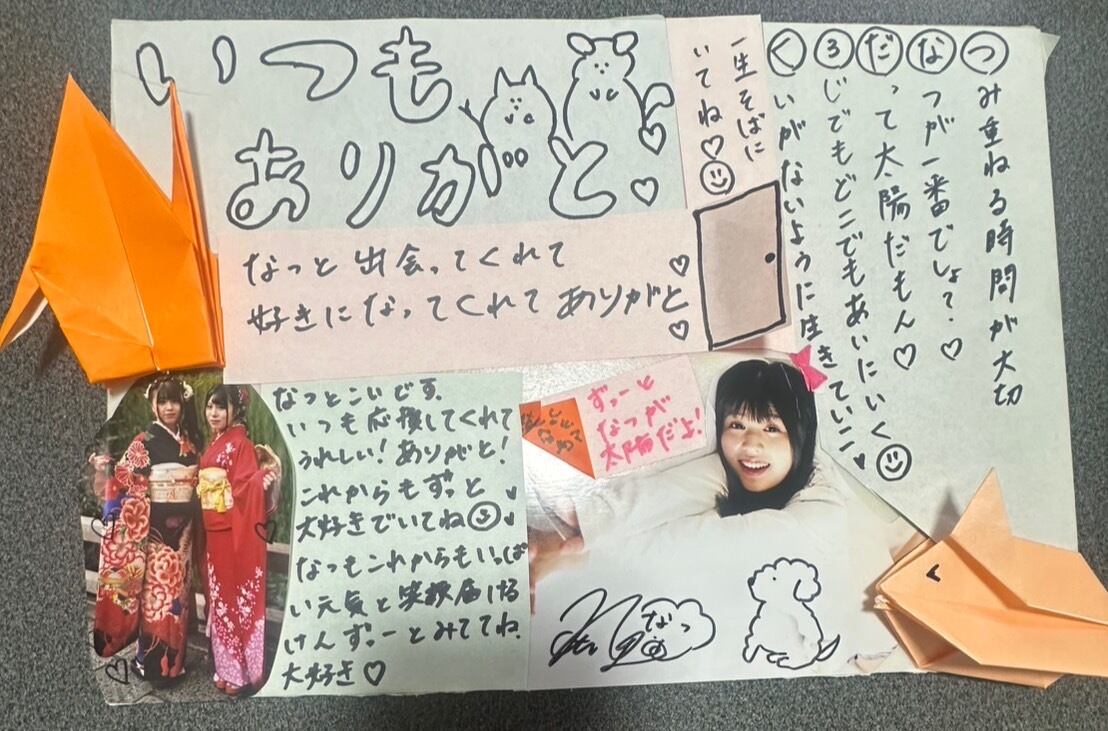 いつも
ありがと
一生そばに
いてね♡
つみ重ねる時間が大切
なつが一番でしょ？♡
だって太陽だもん♡
るじでもどこでもあいにいく
くいがないように生きていこ
なっと出会ってくれて
好きになってくれてありがと
なっとこいです。
いつも応援してくれて
うれしい！ありがと！
これからもずっと
大好きでいてね
なつもこれからもいっぱ
い元気と笑顔届ける
けんずーっとみててね
大好き♡
ずーっと
なつが
太陽だよ！
なつ